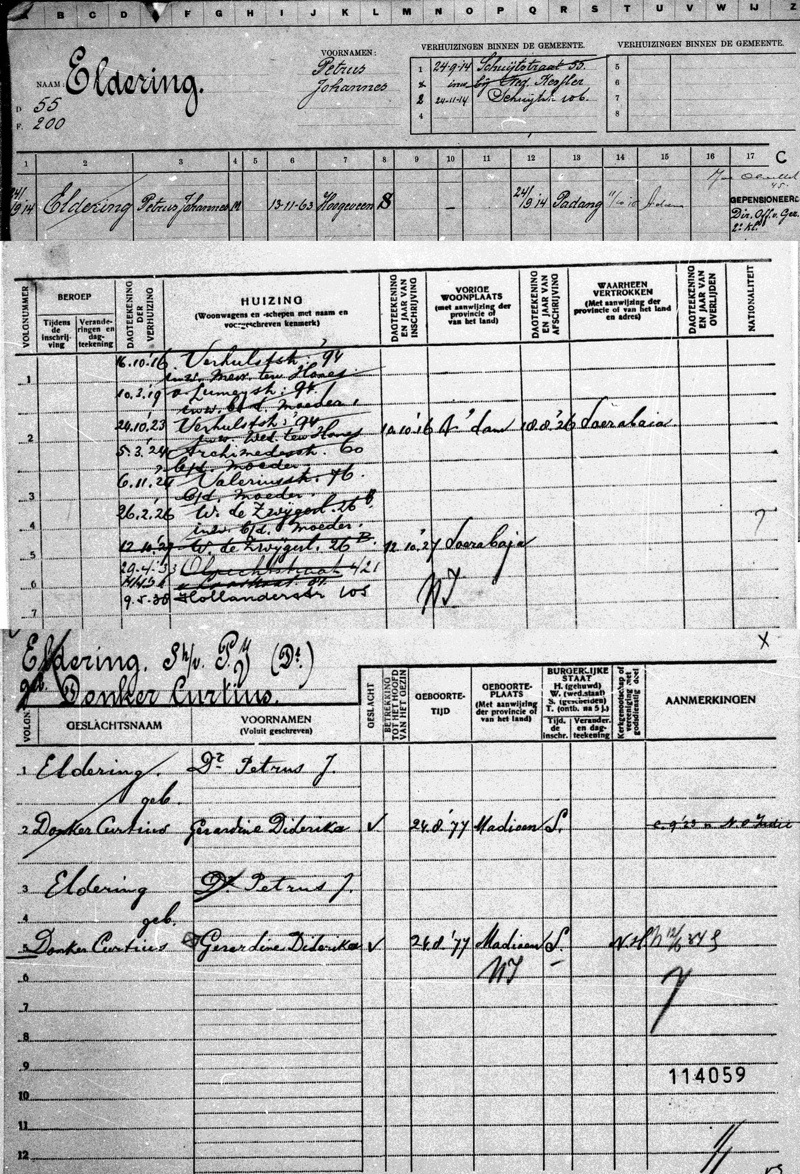 A B C D E F G H I J K L M N O P Q R S T U V W IJ Z
NAAM: Eldering.
VOORNAMEN:
Petrus
Johannes
D 55
F. 200
VERHUIZINGEN BINNEN DE GEMEENTE.
1 24-9-14 Schuijtstraat 55.
inw bij Kessler
2 24-11-14 Schuijtstr 106.
4
VERHUIZINGEN BINNEN DE GEMEENTE.
5
6
7
8
1 2 3 4 5 6 7 8 9 10 11 12 13 14 15 16 17 C
24/9 14 Eldering Petrus Johannes M 13-11-63 Hoogeveen S — 24/9 14 Padang
GEPENSIONEERD
Dir. Off. v. Gez.
2e kl.
VOLGNUMMER
BEROEP
Tijdens de inschrijving
Veranderingen en dagteekening
DAGTEEKENING DER VERHUIZING
HUIZING
(Woonwagens en -schepen met naam en voorgeschreven kenmerk)
DAGTEEKENING EN JAAR VAN INSCHRIJVING
VORIGE WOONPLAATS
(met aanwijzing der provincie of van het land)
DAGTEEKENING EN JAAR VAN AFSCHRIJVING
WAARHEEN VERTROKKEN
(Met aanwijzing der provincie of van het land en adres)
DAGTEEKENING EN JAAR VAN OVERLIJDEN
NATIONALITEIT
8 9 10 11 12 13 14 15 16 17
16.10.'16 Verhulststr. 94
1 inw. Mevr. ten Hones
10.3.19 v Lumeystr. 94.
inw. b/d. moeder
24.10.'23 Verhulststr. 94
2 inw. Wed. ten Hones 10.10.'16 A'dam 18.8.'26 Soerabaia
5.3.'24 Archimedesstr. 60
b/d. moeder
6.11.24 Valeriusstr. 46
3 b/d. moeder.
26.2.26 W. de Zwijgerl. 26 B
4 inw. b/d. moeder.
12.10.'27 W. de Zwijgerl. 26 B. 12.10.'27 Soerabaja
5
29.4.'33 Obrechtstraat 421
6
9.5.38 Hollanderstr 105
NI
7
Eldering. Sh/v. P. J (Dr.)
geb. Donker Curtius.
X
VOLGN.
GESLACHTSNAAM
VOORNAMEN
(Voluit geschreven)
GESLACHT
BETREKKING TOT HET HOOFD VAN HET GEZIN
GEBOORTE-TIJD
GEBOORTE-PLAATS
(Met aanwijzing der provincie of van het land)
BURGERLIJKE STAAT
H. (gehuwd)
W. (werd. staat)
S. (gescheiden)
T. (ontb. na 5 j.)
Tijd. de inschr.
Verander. en dagteekening
Kerkgenootschap of vereeniging met godsdienstig doel
AANMERKINGEN
1 2 3 4 5 6 7
1 Eldering Dr. Petrus J.
geb.
2 Donker Curtius Gerardine Diderika V. 24.8.'77 Madioen S.
3 Eldering Dr. Petrus J.
4 geb.
5 Donker Curtius Gerardine Diderika V 24.8.'77 Madioen S. N.H.
6 NI
7
8
9
114059
10
11
12